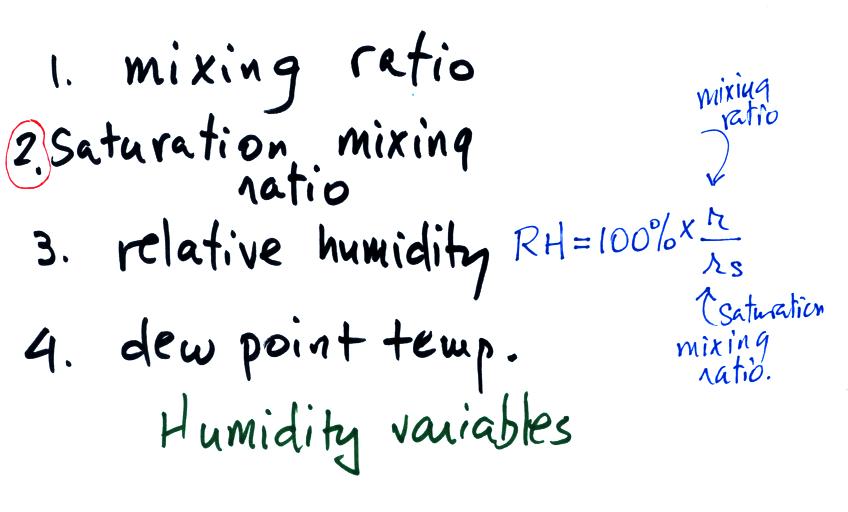 1. mixing ratio
2. Saturation mixing
ratio
3. relative humidity
4. dew point temp.
Humidity variables
mixing
ratio
RH = 100% × r/rs
saturation
mixing
ratio.